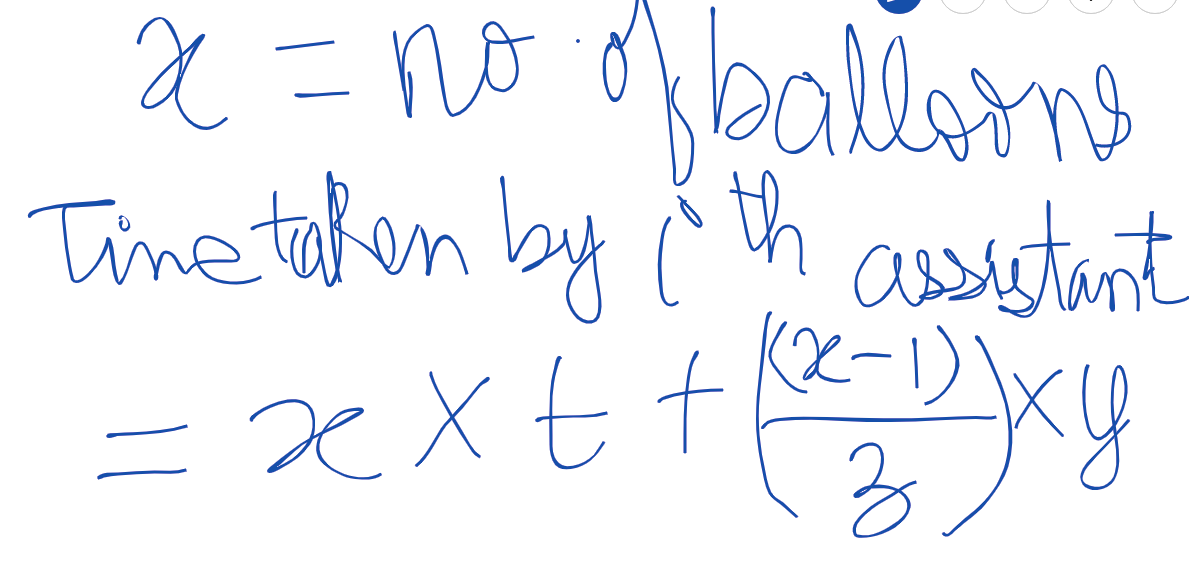 x = no. of balloons
Time taken by i'th assistant
= x × t + ((x-1)/z) × y